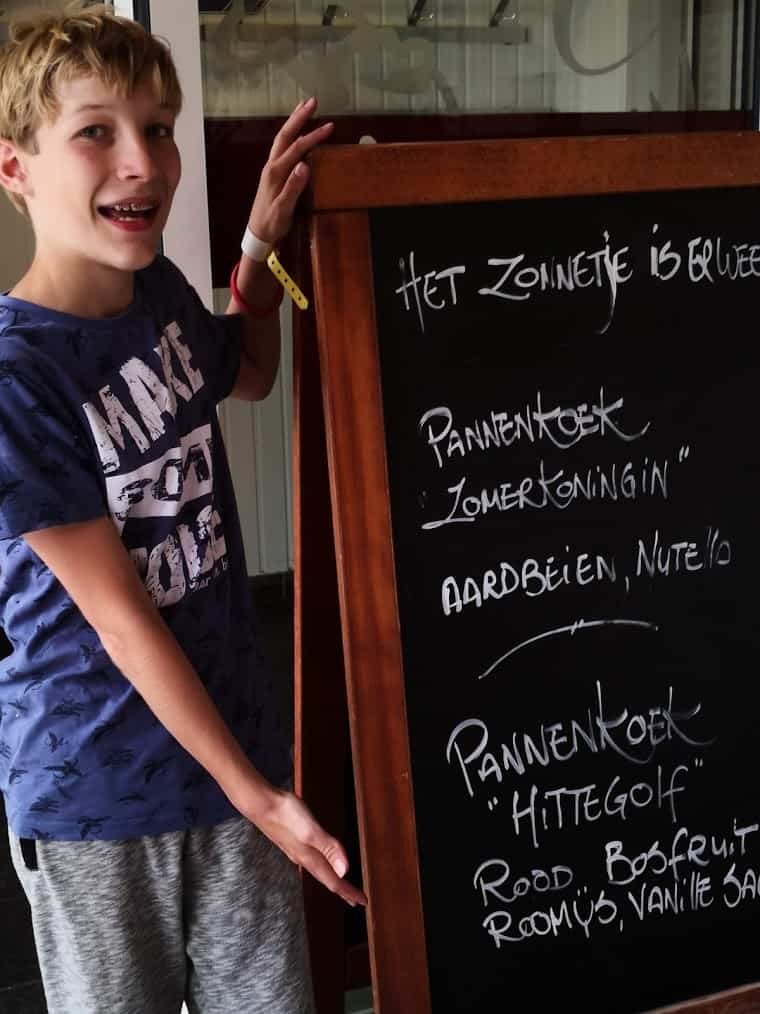 HET ZONNETJE IS ER WEE
PANNENKOEK
"ZOMERKONINGIN"
AARDBEIEN, NUTELLA
PANNENKOEK
"HITTEGOLF"
ROOD BOSFRUIT
ROOMIJS, VANILLE SA
MAKE